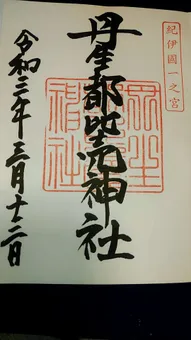 紀伊國一之宮
丹生都比売神社
令和三年三月十二日